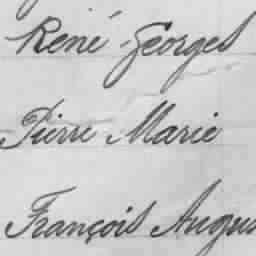 René Georges
Pierre Marie
François Augus